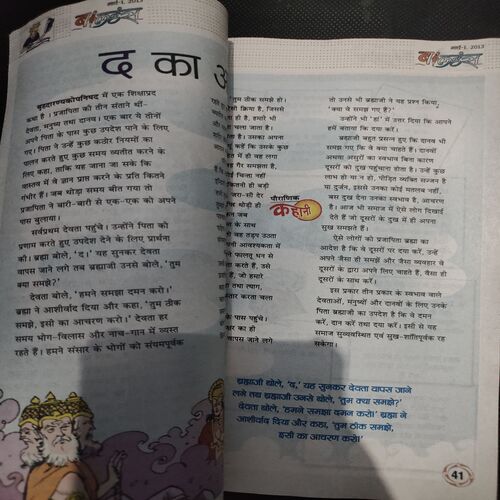 मार्च-I, 2013
द का
बृहदारण्यकोपनिषद में एक शिक्षाप्रद
कथा है । प्रजापिता की तीन संताने थीं-
देवता, मनुष्य तथा दानव। एक बार ये तीनों
अपने पिता के पास कुछ उपदेश पाने के लिए
गए। पिता ने उन्हें कुछ कठोर नियमों का
पालन करते हुए कुछ समय व्यतीत करने के
लिए कहा, ताकि यह जाना जा सके कि
वास्तव में वे ज्ञान प्राप्त करने के प्रति कितने
गंभीर हैं। जब थोड़ा समय बीत गया तो
प्रजापिता ने बारी-बारी से एक-एक को अपने
पास बुलाया।
सर्वप्रथम देवता पहुंचे। उन्होंने पिता को
प्रणाम करते हुए उपदेश देने के लिए प्रार्थना
की। ब्रह्मा बोले, 'द।' यह सुनकर देवता
वापस जाने लगे तब ब्रह्माजी उनसे बोले, 'तुम
क्या समझे?'
देवता बोले, 'हमने समझा दमन करो।'
ब्रह्मा ने आशीर्वाद दिया और कहा, 'तुम ठीक
समझे, इसी का आचरण करो।' देवता हर
समय भोग-विलास और नाच-गान में व्यस्त
रहते हैं। हमने संसार के भोगों को संयमपूर्वक
तुम ठीक समझे हो।
किया है, जिससे
हो है, हमारे भी
चला जाता है।
है। उसका अपना
कहें कि उसके कुछ
में ही वह लगा
चिंता नहीं
कितनी ही बड़ी
जरा-सी देर
थोड़ी ही
जब
के साथ
वह हड़प उठता
आवश्यकता में
ने, फालतू धन
करते हैं, उसे
हमारे हर
तथा त्याग,
करता चला
पास पहुंचे।
का ही
वापस जाने लगे
पौराणिक
कहानी
मार्च-I, 2013
तो उनसे भी ब्रह्माजी ने यह प्रश्न किया,
'क्या वे समझ गए हैं?'
उन्होंने भी 'हां' में उत्तर दिया कि आपने
हमें बताया कि दया करें।
ब्रह्माजी बहुत प्रसन्न हुए कि दानव भी
समझ गए कि वे क्या चाहते हैं। दानवों
अथवा असुरों का स्वभाव बिना कारण
दूसरों को दुख पहुंचाना होता है। उन्हें कुछ
लाभ हो या न हो, पीड़ित व्यक्ति सज्जन है
या दुर्जन, इससे उनका कोई मतलब नहीं,
बस दुख देना उनका स्वभाव है, आचरण
है। आज भी समाज में ऐसे लोग दिखाई
देते हैं जो दूसरों के दुख में ही अपना
सुख समझते हैं।
ऐसे लोगों को प्रजापिता ब्रह्मा का
आदेश है कि वे दूसरों पर दया करें, उन्हें
अपने जैसा ही समझें और जैसा व्यवहार वे
दूसरों के द्वारा अपने लिए चाहते हैं, वैसा ही
दूसरों के साथ करें।
इस प्रकार तीन प्रकार के स्वभाव वाले
देवताओं, मनुष्यों और दानवों के लिए उनके
पिता ब्रह्माजी का उपदेश है कि वे दमन
करें, दान करें तथा दया करें। इसी से यह
समाज सुव्यवस्थित एवं सुख-शांतिपूर्वक रह
सकेगा।
ब्रह्माजी बोले, 'द,' यह सुनकर देवता वापस जाने
लगे तब ब्रह्माजी उनसे बोले, 'तुम क्या समझे?'
देवता बोले, 'हमने समझा दमन करो।' ब्रह्मा ने
आशीर्वाद दिया और कहा, 'तुम ठीक समझे,
इसी का आचरण करो।'
41